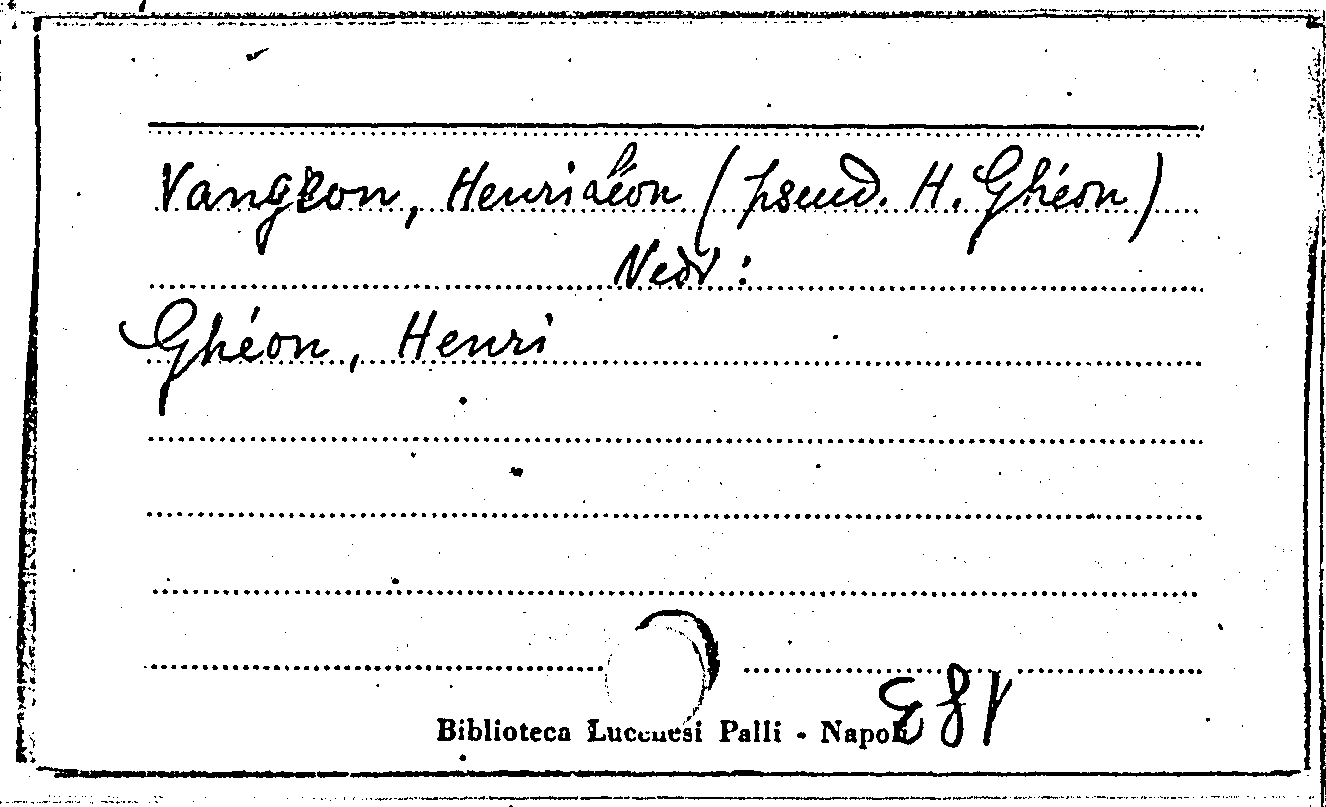 Vangeon, Henri Léon (pseud. H. Ghéon)
Vedi:
Ghéon, Henri
Biblioteca Lucchesi Palli - Napoli